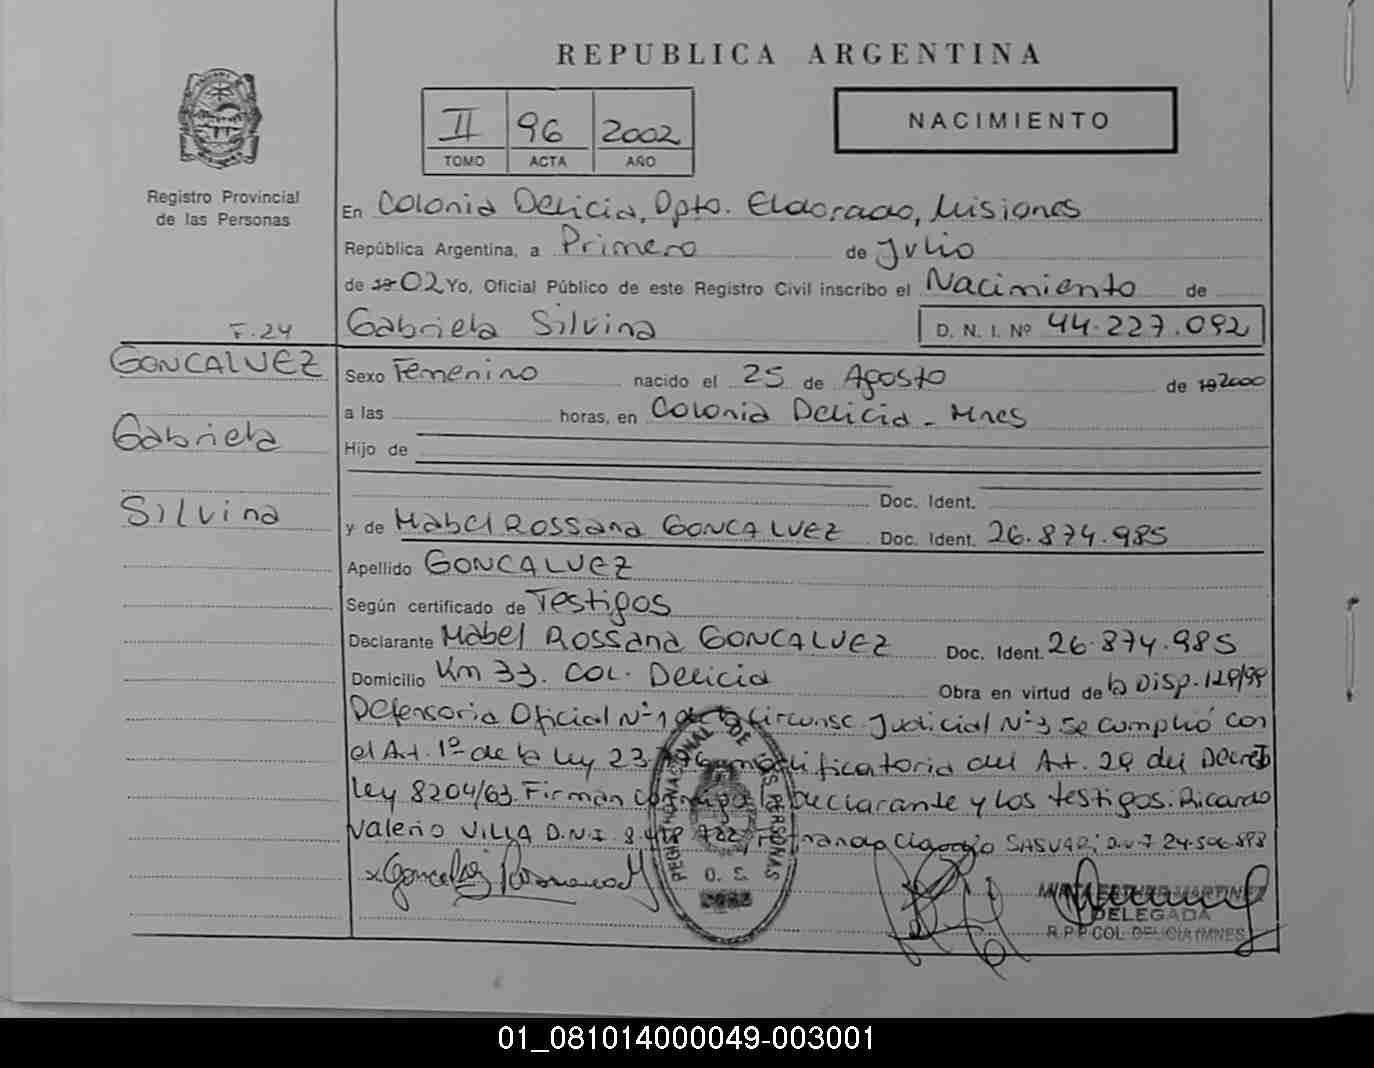 REPUBLICA ARGENTINA
II 96 2002
TOMO ACTA AÑO
NACIMIENTO
Registro Provincial
de las Personas
En Colonia Delicia, Dpto. Eldorado, Misiones
República Argentina, a Primero de Julio
de 19 02 Yo, Oficial Público de este Registro Civil inscribo el Nacimiento de
F. 24
Gabriela Silvina D. N. I. Nº 44.227.092
GONCALVEZ
Gabriela
Silvina
Sexo Femenino nacido el 25 de Agosto de 19 2000
a las horas, en Colonia Delicia - Mnes
Hijo de
Doc. Ident.
y de Mabel Rossana GONCALVEZ Doc. Ident. 26.874.985
Apellido GONCALVEZ
Según certificado de Testigos
Declarante Mabel Rossana GONCALVEZ Doc. Ident. 26.874.985
Domicilio Km 33. COL. Delicia Obra en virtud de la Disp.
Defensoria Oficial Nº 1 de la Circunsc. Judicial Nº 3 Se cumplió con
el Art. 1º de la Ley 23. modificatoria del Art. 29 del Decreto
Ley 8204/63. Firman conmigo la Declarante y los testigos. Ricardo
Valerio VILLA D.N.I. 8.418.722, SASVARI D.N.I 24.506.
DELEGADA
R.P.P COL. DELICIA (MNES)
01_081014000049-003001